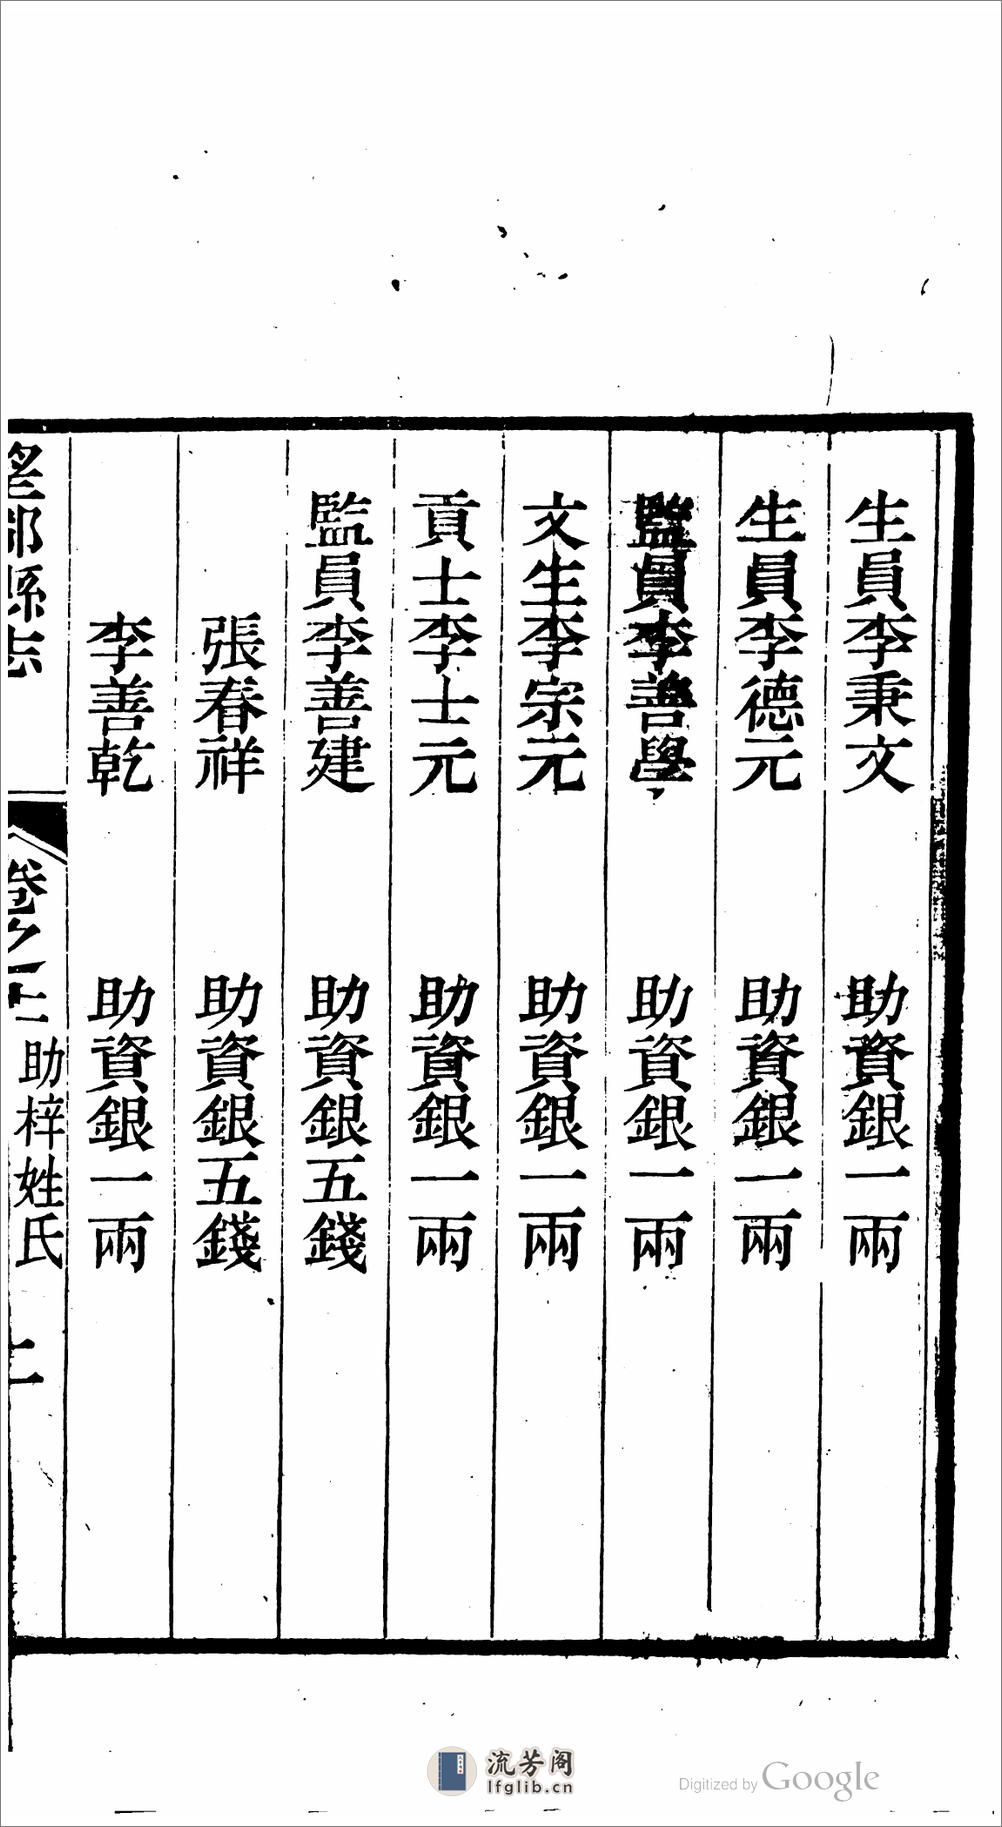 生員李秉文　助資銀一兩
生員李德元　助資銀一兩
監員李善學　助資銀一兩
文生李宗元　助資銀一兩
貢士李士元　助資銀一兩
監員李善建　助資銀五錢
張春祥　助資銀五錢
李善乾　助資銀一兩
望都縣志　卷之　助梓姓氏
流芳阁
lfglib.cn
Digitized by Google